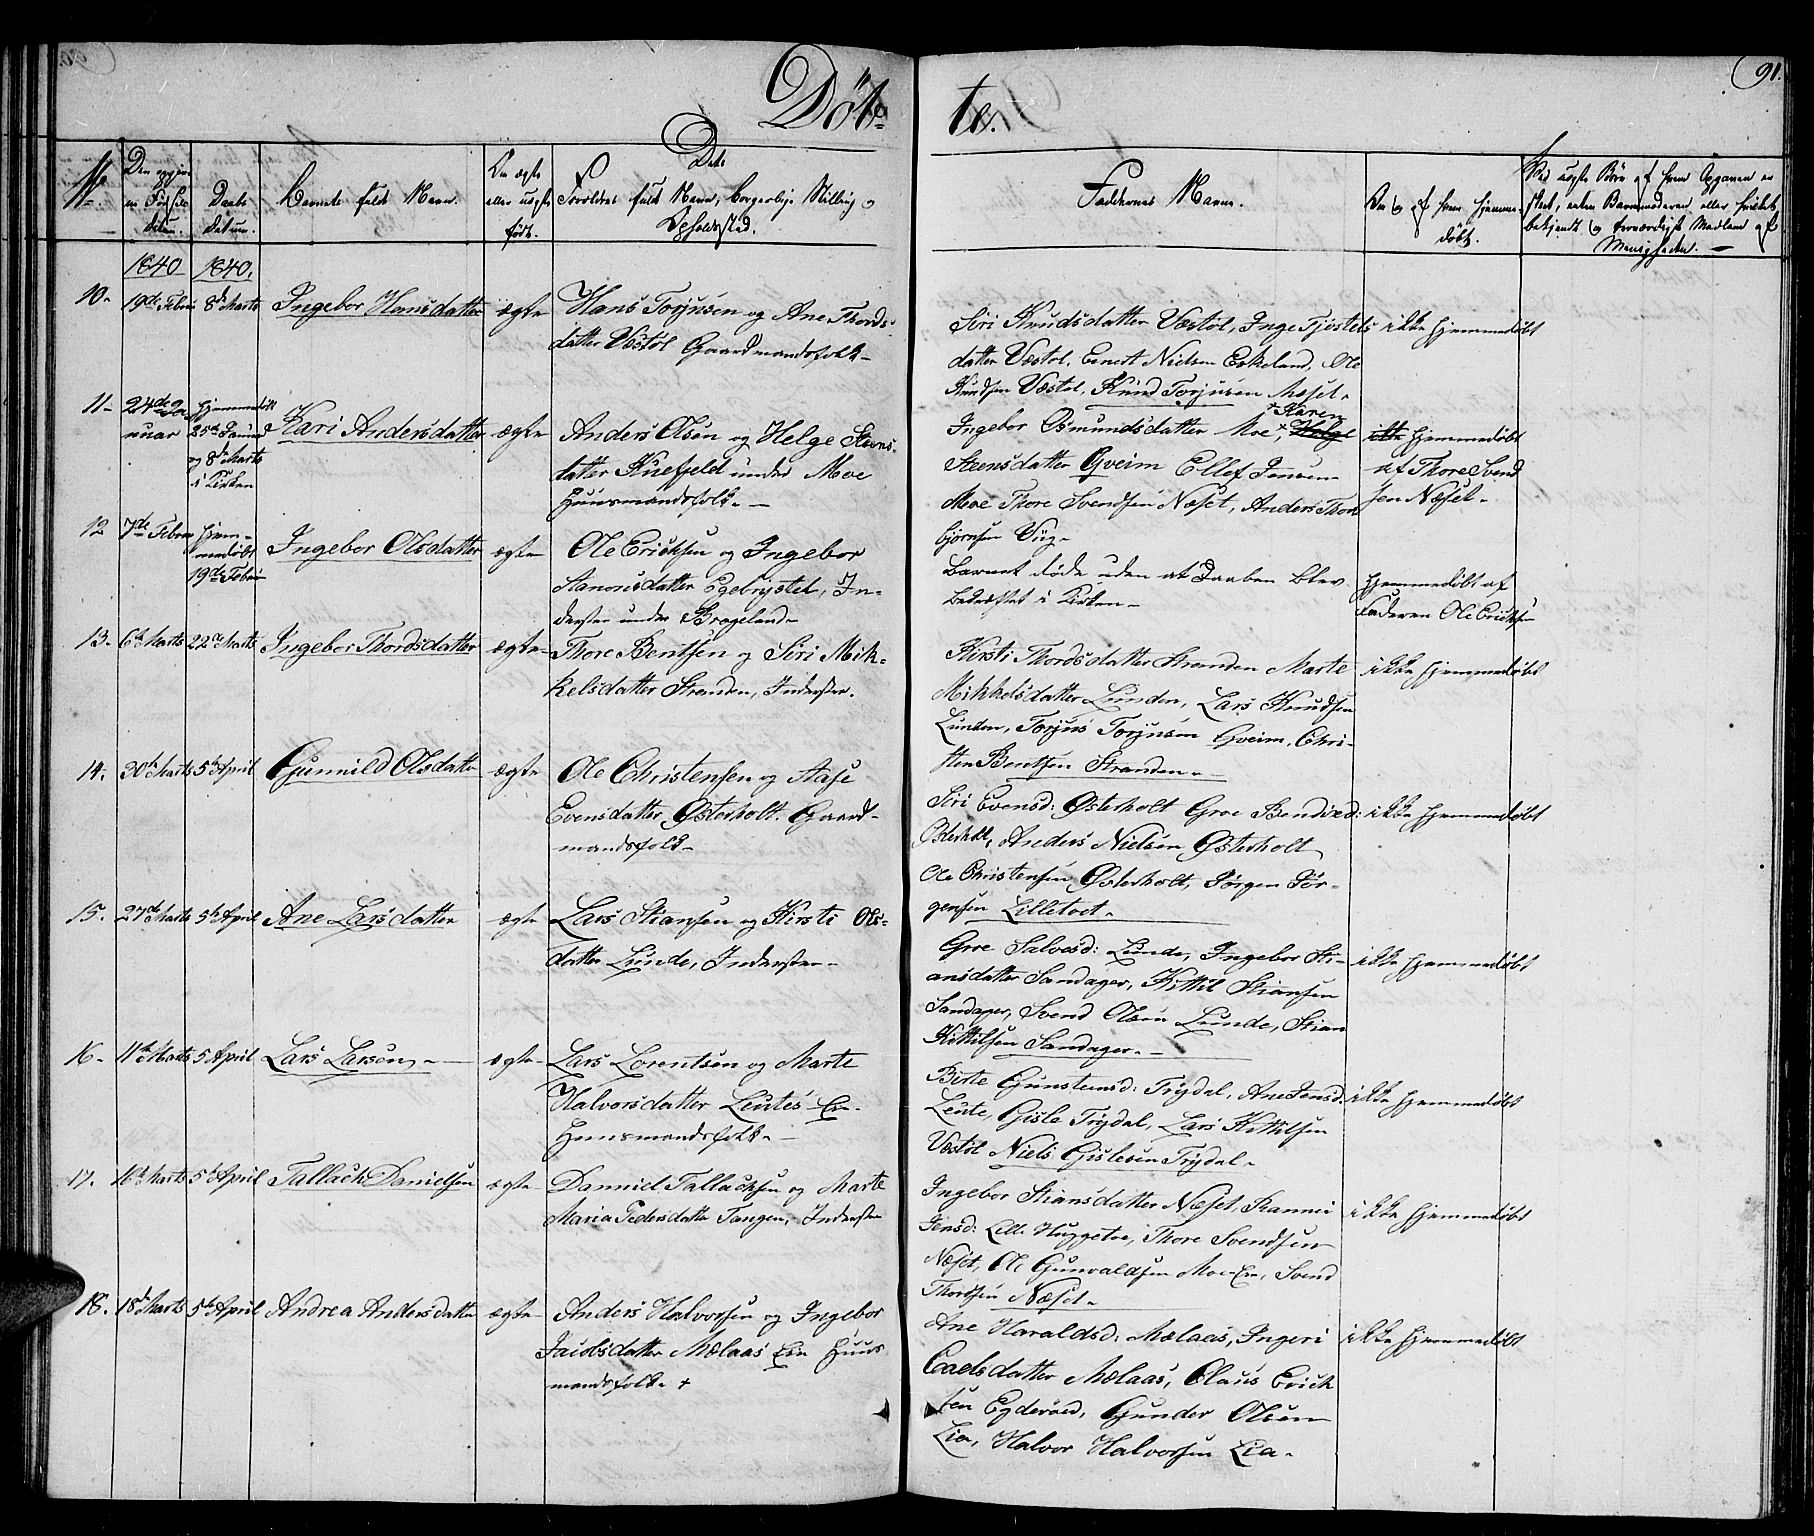 91.
Døb=
te.
No
Den opgivne Fødselsdatum.
Daabs Datum.
Barnets fulde Navn.
Om ægte eller uægte født.
Dets Forældres fulde Navn, borgerlige Stilling og Opholdssted.
Faddernes Navne.
Om og af hvem hjemmedøbt.
1840 1840,
10. 19de Febru 8de Marts Ingebor Hansdatter ægte
Hans Torjusen og Ane Thords-
datter Vestøl Gaardmandsfolk
Siri Knudsdatter Vestøl, Inge Tjøstels
datter Vestøl, Ennert Nielsen Eskeland, Ole
Knudsen Vestøl, Knud Torjusen Næset.
ikke hjemmedøbt
11. 24de Ja-
nuar
hjemmedøbt
25de Januar
og 8de Marts
i Kirken
Kari Andersdatter ægte
Anders Olsen og Helge Steens-
datter Knefjeld under Moe
Huusmandsfolk.
× Karen
Ingebor Osmundsdatter Moe ×, Helge
Steensdatter Gveim Ellef Jensen
Moe Thore Svendsen Næset, Anders Thor
bjørnsen Viig
ikke hjemmedøbt
af Thore Svend
sen Næset.
12 7de Febru
hjem-
medøbt
19de Febru
Ingebor Olsdatter ægte
Ole Ericksen og Ingebor
Stanoisdatter Egebrysted, In-
derster under Brageland
Barnet døde uden at Daaben blev
bekræftet i Kirken
hjemmedøbt af
Faderen Ole Ericksen
13. 6te Marts 22de Marts Ingebor Thordsdatter ægte
Thore Bentsen og Siri Mik-
kelsdatter Stranden, Inderster.
Kirsti Thordsdatter Stranden Marte
Mikkelsdatter Lunden, Lars Knudsen
Lunden, Torjus Torjusen Gveim, Chri-
sten Bentsen Stranden
ikke hjemmedøbt
14. 30te Marts 5te April Gunnild Olsdatter ægte
Ole Christensen og Aase
Evensdatter Østerholt. Gaard-
mandsfolk
Siri Evensd: Østerholt Groe Bendixd:
Østerholt, Anders Nielsen Østerholt
Ole Christensen Østerholt, Jørgen Jør-
gensen Lilletvet.
ikke hjemmedøbt
15. 27de Marts 5te April Ane Larsdatter ægte
Lars Stiansen og Kirsti Ols-
datter Lunde, Inderster
Groe Salvesd: Lunde, Ingebor Sti-
ansdatter Sandager, Kittil Stiansen
Sandager, Svend Olsen Lunde, Stian
Kittilsen Sandager.
ikke hjemmedøbt
16. 11te Marts 5 April Lars Larsen ægte
Lars Lorentsen og Marte
Halvorsdatter Leutes Eie
Huusmandsfolk.
Birte Gunsteensd: Trydal, Ane Jensd:
Leute, Gisle Trydal, Lars Kittilsen
Vestøl Niels Gislesen Trydal.
ikke hjemmedøbt
17. 16de Marts 5te April Tallach Danielsen ægte
Danniel Tallacksen og Marte
Maria Pedersdatter Tangen, Inderster
Ingebor Stiansdatter Næset, Rannei
Jensd: Lille Huggetoe, Thore Svendsen
Næset, Ole Gunvaldsen Moe-Eie, Svend
Thordsen Næset.
ikke hjemmedøbt
18. 18de Marts 5te April Andrea Andersdatter ægte
Anders Halvorsen og Ingebor
Jacobsdatter Mælaas Eie Huus
mandsfolk +
Ane Haraldsd: Mælaas, Ingeri
Carlsdatter Mælaas, Olaus Erick
sen Egderød, Gunder Olsen
Lia, Halvor Halvorsen Lia.
ikke hjemmedøbt